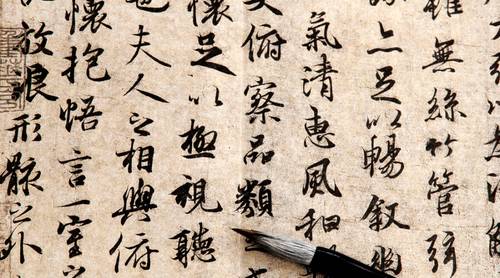 雖無絲竹管弦
亦足以暢敘幽
氣清惠風和
大俯察品類之
懷足以極視聽
也夫人之相與俯
懷抱悟言一室
放浪形骸之外